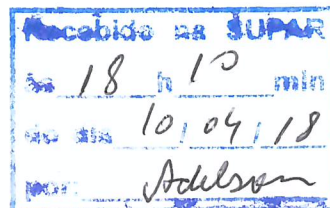 Recebido na SUPAR
às 18 h 10 min
do dia 10, 04, 18
por: Adelson